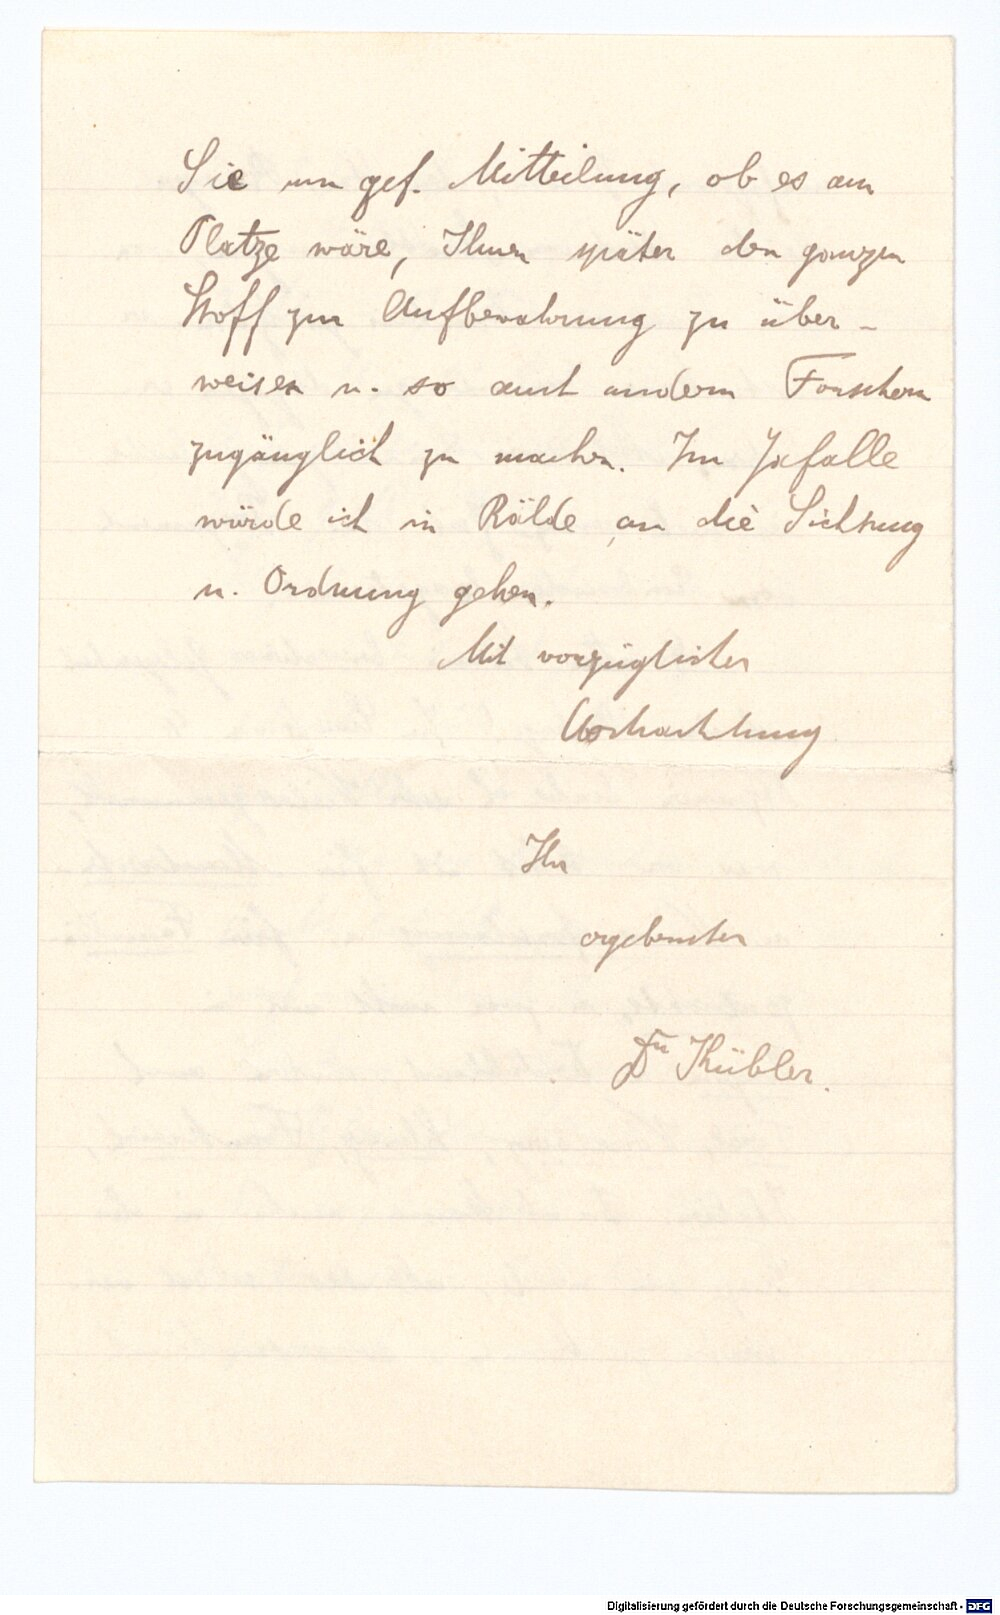 Sie um gef. Mitteilung, ob es am
Platze wäre, Ihnen später den ganzen
Stoff zur Aufbewahrung zu über-
weisen u. so auch andern Forschern
zugänglich zu machen. Im Jafalle
würde ich in Bälde an die Sichtung
u. Ordnung gehen.
Mit vorzüglicher
Hochachtung
Ihr
ergebenster
Dr Kübler.
Digitalisierung gefördert durch die Deutsche Forschungsgemeinschaft - DFG